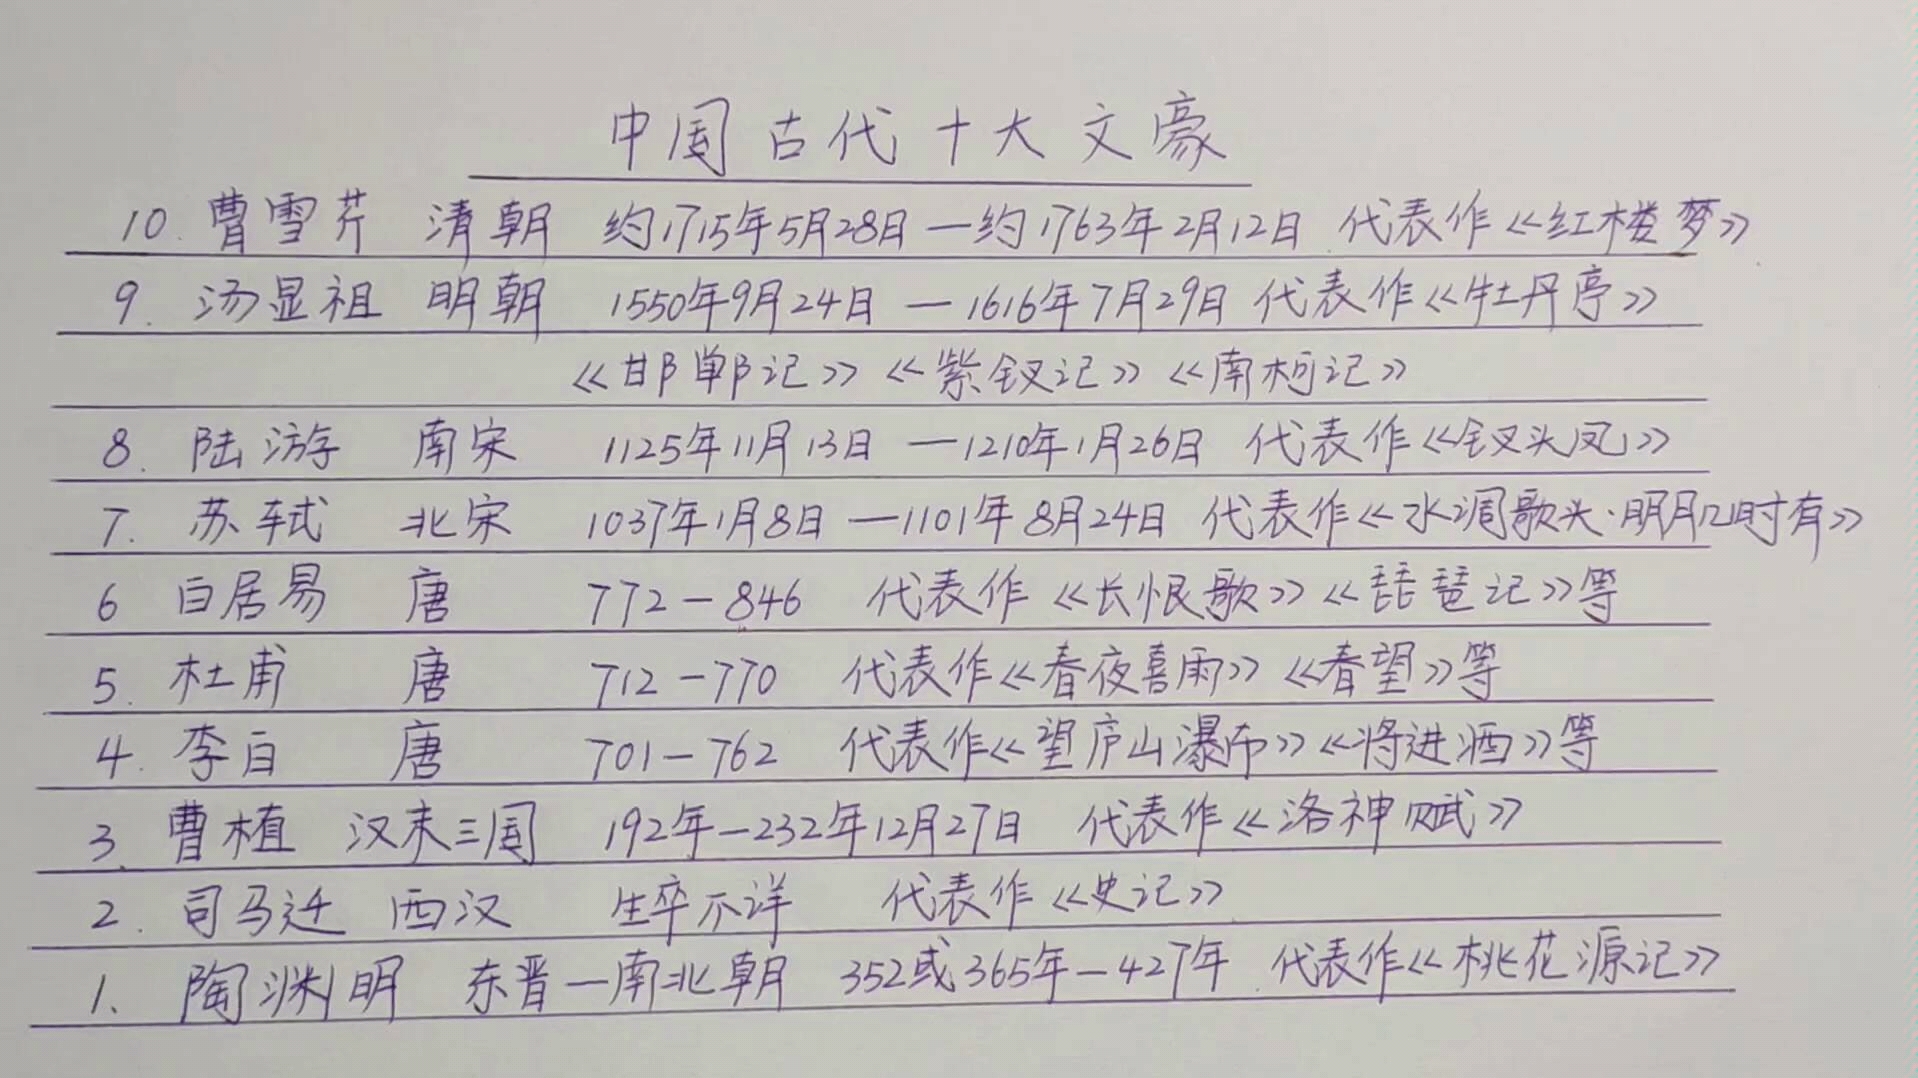 中国古代十大文豪
10. 曹雪芹 清朝 约1715年5月28日—约1763年2月12日 代表作《红楼梦》
9. 汤显祖 明朝 1550年9月24日—1616年7月29日 代表作《牡丹亭》
《邯郸记》《紫钗记》《南柯记》
8. 陆游 南宋 1125年11月13日—1210年1月26日 代表作《钗头凤》
7. 苏轼 北宋 1037年1月8日—1101年8月24日 代表作《水调歌头·明月几时有》
6 白居易 唐 772—846 代表作《长恨歌》《琵琶记》等
5. 杜甫 唐 712—770 代表作《春夜喜雨》《春望》等
4. 李白 唐 701—762 代表作《望庐山瀑布》《将进酒》等
3. 曹植 汉末三国 192年—232年12月27日 代表作《洛神赋》
2. 司马迁 西汉 生卒不详 代表作《史记》
1. 陶渊明 东晋—南北朝 352或365年—427年 代表作《桃花源记》